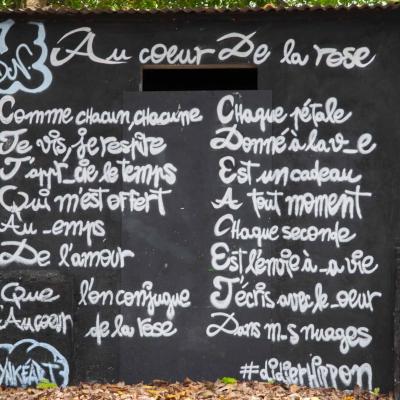 Au coeur De la rose
Comme chacun, chacune
Je vis, je respire
J'appr_cie le temps
Qui m'est offert
Au _emps
De l'amour
Que l'on conjugue
Au coeur de la rose
Chaque pétale
Donné à la v_e
Est un cadeau
A tout moment
Chaque seconde
Est l'envie à _a vie
J'écris avec le _oeur
Dans m_s nuages
#didierHippon